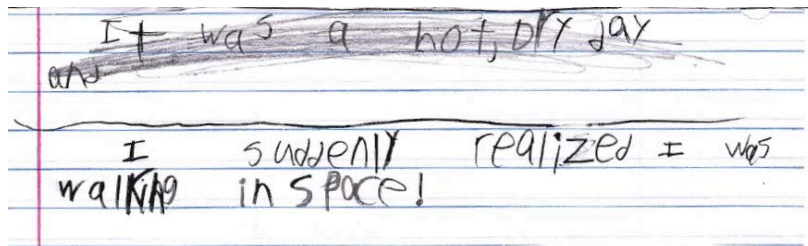 It was a hot, Dry day
and
I suddenly realized I was
walking in space!